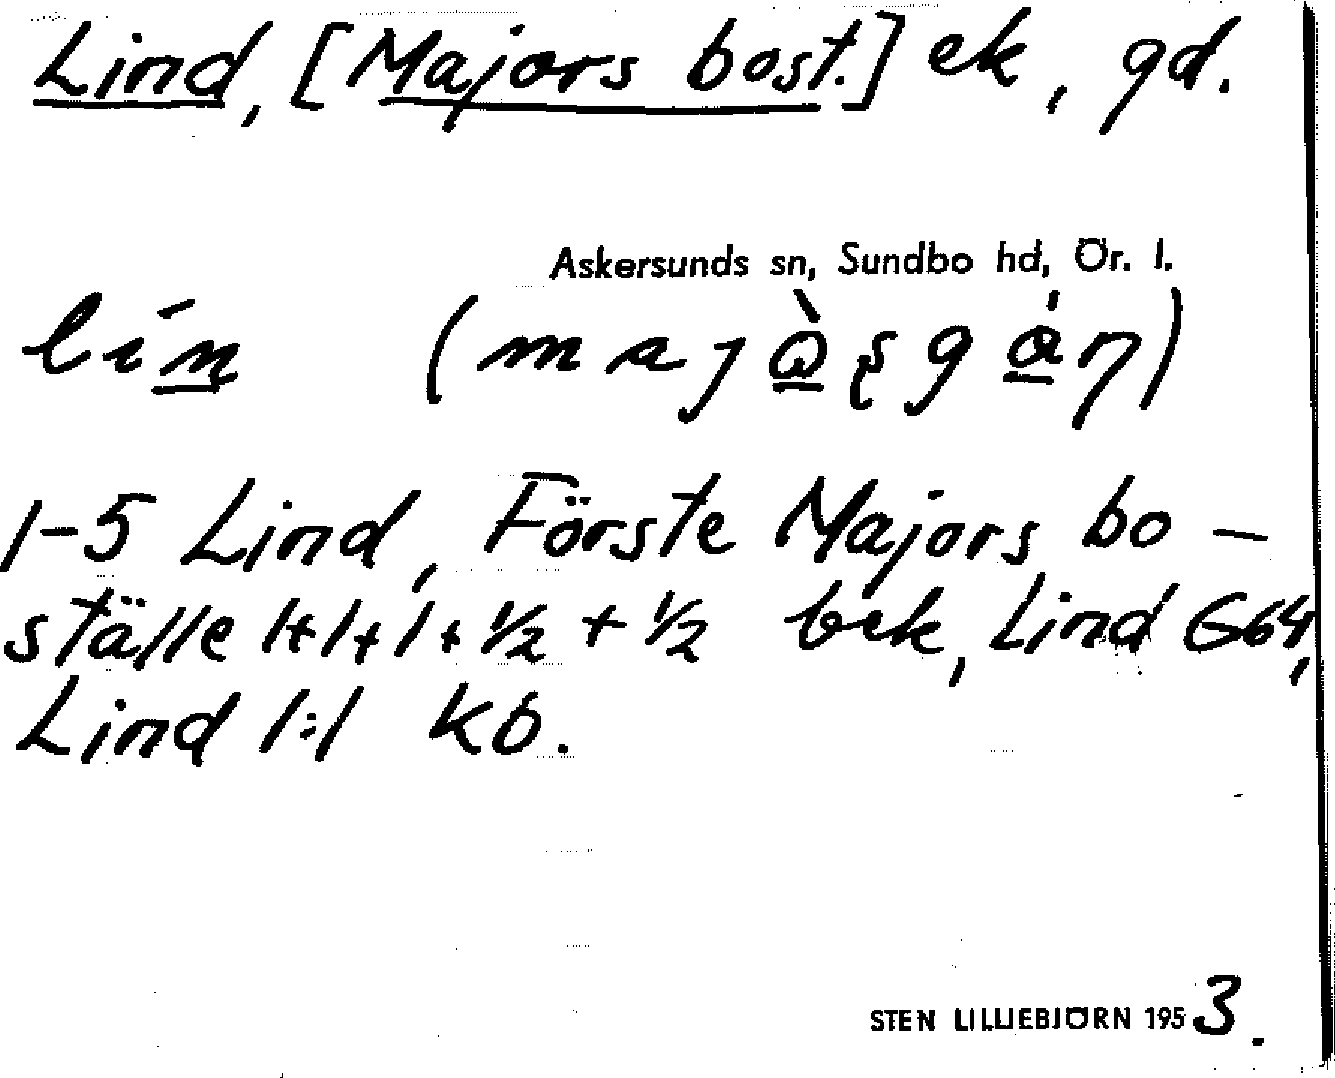 Lind, [Majors bost.] ek, gd.
Askersunds sn, Sundbo hd, Ör. l.
1-5 Lind, Förste Majors bo-
ställe 1+1+1+½+½ bek, Lind G64,
Lind 1:1 kb.
STEN LILLIEBJÖRN 1953.